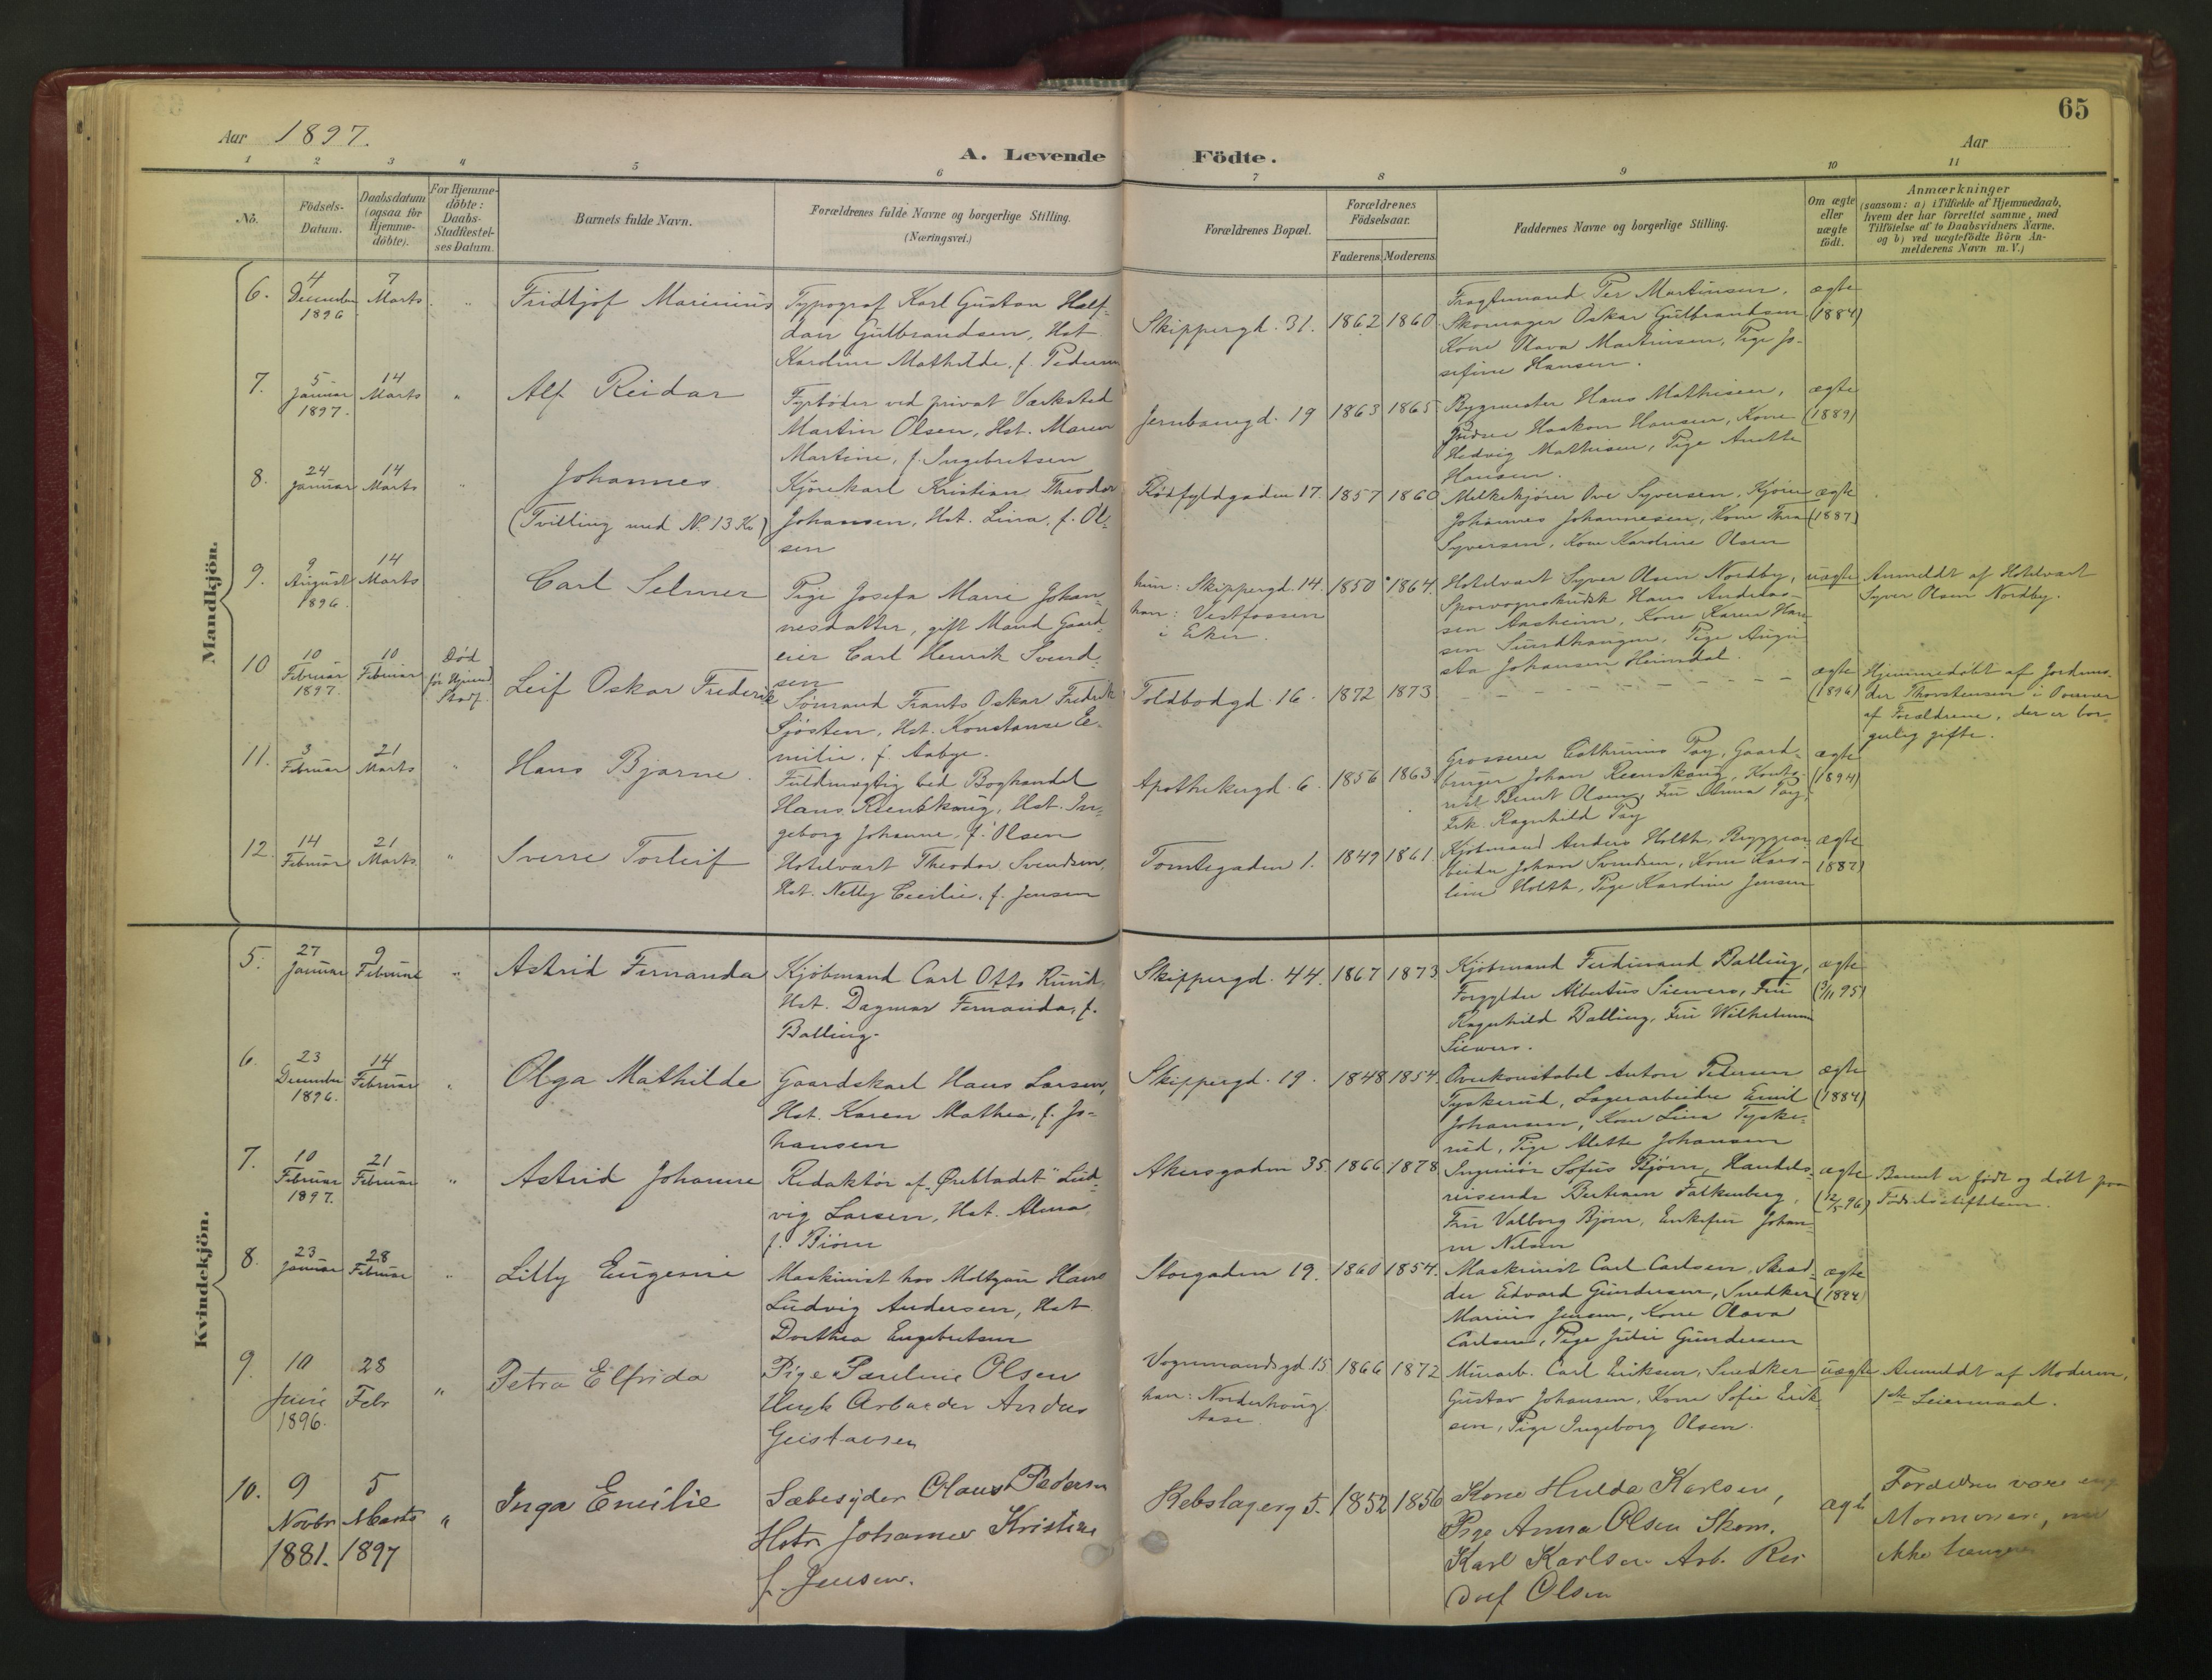 65
Aar 1897.
Aar
A. Levende Födte.
1 2 3 4 5 6 7 8 9 10 11
No.
Födsels-
Datum.
Daabsdatum
(ogsaa for
Hjemme-
döbte).
For Hjemme-
döbte:
Daabs-
Stadfæstel-
ses Datum.
Barnets fulde Navn.
Forældrenes fulde Navne og borgerlige Stilling.
(Næringsvei.)
Forældrenes Bopæl.
Forældrenes
Födselsaar.
Faderens. Moderens.
Faddernes Navne og borgerlige Stilling.
Om ægte
eller
uægte
födt.
Anmærkninger
(saasom: a) i Tilfælde af Hjemmedaab,
hvem der har forrettet samme, med
Tilföielse af to Daabsvidners Navne.
og b) ved uægtefödte Börn An-
melderens Navn m. V.)
Mandkjön.
6.
4
December
1896
7
Marts
"
Fridtjof Marinius
Typograf Karl Gustav Half-
dan Gulbrandsen, Hst.
Karoline Mathilde, f. Pedersen
Skippergd. 31.
1862 1860
Fragtemand Per Martinsen,
Skomager Oskar Gulbrandsen
Kone Olava Martinsen, Pige Jo-
sefine Hansen.
ægte
(1884)
7.
5
Januar
1897.
14
Marts
"
Alf Reidar
Fyrbøder ved privat Værksted
Martin Olsen, Hst. Maren
Martine, f. Ingebretsen
Jernbanegd. 19
1863 1865
Bygmester Hans Mathisen,
Haakon Hansen, Kone
Hedvig Mathisen, Pige Anette
Hansen.
ægte
(1889)
8.
24
Januar
14
Marts
"
Johannes
(Tvilling med No. 13 Kv)
Kjørekarl Kristian Theodor
Johansen, Hst. Lina, f. Ol-
sen
Rødfyldgaden 17.
1857 1860
Melkekjører Ove Syversen, Kjører
Johannes Johannesen, Kone Thea
Syversen, Kone Karoline Olsen
ægte
(1887)
9.
9
August
1896.
14
Marts
Carl Selmer
Pige Josefa Marie Johan-
nesdatter, gift Mand Gaard-
eier Carl Henrik Svend-
sen
hun: Skippergd. 14.
han: Vestfossen
i Eker.
1850 1864.
Hotelvært Syver Olsen Nordby,
Sporvognskudsk Hans Andreas-
sen Aasheim, Kone Karen Han-
sen Sundhaugen, Pige Augu-
sta Johansen Heimdal.
uægte
Anmeldt af Hotelvært
Syver Olsen Nordby.
10
10
Februar
1897.
10
Februar
Død
før Hjemmed.
Stadf.
Leif Oskar Frederik
Sømand Frants Oskar Fredrik
Sjösten, Hst. Konstanse E-
milie, f. Aabye.
Toldbodgd. 16.
1872 1873
ægte
(1896)
Hjemmedøbt af Jordmo-
der Thorstensen i Overvær
af Forældrene, der er bor-
gerlig gifte.
11.
3
Februar
21
Marts
"
Hans Bjarne.
Fuldmægtig ved Boghandel
Hans Reenskaug, Hst. In-
geborg Johanne, f. Olsen
Apothekergd. 6.
1856 1863
Grosserer Cathrinus Pay, Gaard-
bruger Johan Reenskaug, Konto-
rist Bernt Olsen, Fru Anna Pay,
Frk. Ragnhild Pay
ægte
(1894)
12.
14
Februar
21
Marts
"
Sverre Torleif
Hotelvært Theodor Svendsen,
Hst. Nelly Cecilie, f. Jensen
Tomtegaden 1.
1849 1861.
Kjøbmand Anders Holth, Bryggear-
beider Johan Svendsen, Kone Karo-
line Holth, Pige Karoline Jensen
ægte
1882)
Kvindekjön.
5.
27
Januar
9
Februar
"
Astrid Fernanda
Kjøbmand Carl Otto Ruud,
Hst. Dagmar Fernanda, f.
Balling.
Skippergd. 44.
1867 1873
Kjøbmand Ferdinand Balling,
Forgylder Albertus Siewers, Fru
Ragnhild Balling, Fru Wilhelmine
Siewers.
ægte
(3/11 95)
6.
23
December
1896.
14
Februar
"
Olga Mathilde
Gaardskarl Hans Larsen,
Hst. Karen Mathea, f. Jo-
hansen
Skippergd. 19.
1848 1854.
Overkonstabel Anton Petersen
Tyskerud, Lagerarbeider Emil
Johansen, Kone Lina Tyske-
rud, Pige Alette Johansen
ægte
(1884)
7.
10
Februar
1897.
21
Februar
"
Astrid Johanne
Redaktør af "Ørebladet" Lud-
vig Larsen, Hst. Alma,
f. Biørn
Akersgaden 35.
1866 1878
Ingeniør Sofus Bjørn, Handels-
reisende Bertram Falkenberg,
Fru Valborg Bjørn, Enkefru Johan-
ne Nelson
ægte
(12/5 96)
Barnet er født og døbt paa
Fødselsstiftelsen.
8.
23
Januar
28
Februar
"
Lilly Eugenie
Maskinist hos Moltzau Hans
Ludvig Andersen, Hst.
Dorthea Engebretsen
Storgaden 19.
1860 1854.
Maskinist Carl Carlsen, Skræd-
der Edvard Gundersen, Snedker
Marius Jensen, Kone Olava
Carlsen, Pige Julie Gundersen
ægte
(1894)
9.
10
Juni
1896.
28
Febr
"
Petra Elfrida
Pige Pauline Olsen
Ungk Arbeider Anders
Gustavsen
Vognmandsgd. 15
han: Norderhoug
Aase.
1866 1872
Murarb. Carl Eriksen, Snedker
Gustav Johansen, Kone Sofie Erik-
sen, Pige Ingeborg Olsen.
uægte
Anmeldt af Moderen,
1ste Leiermaal.
10.
9
Novbr
1881.
5
Marts
1897
"
Inga Emilie
Sæbesyder Olaus Pedersen
Hstr Johanne Kristine
f. Jensen.
Rebslagerg 5.
1852 1856
Kone Hulda Karlsen,
Pige Anna Olsen Skom.
Karl Karlsen Arb. Ru-
dolf Olsen
ægte
Forældrene vare
Mormoner,
ikke længere